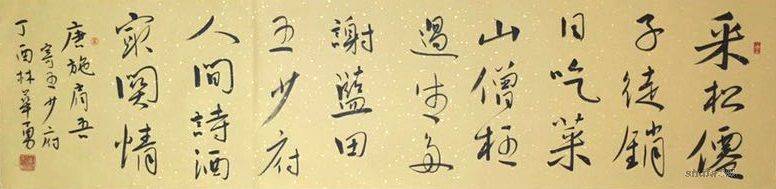 采松僊
子徒銷
日吃菜
山僧枉
過生多
謝藍田
王少府
人間詩酒
冣關情
唐施肩吾
寄王少府
丁酉林華勇